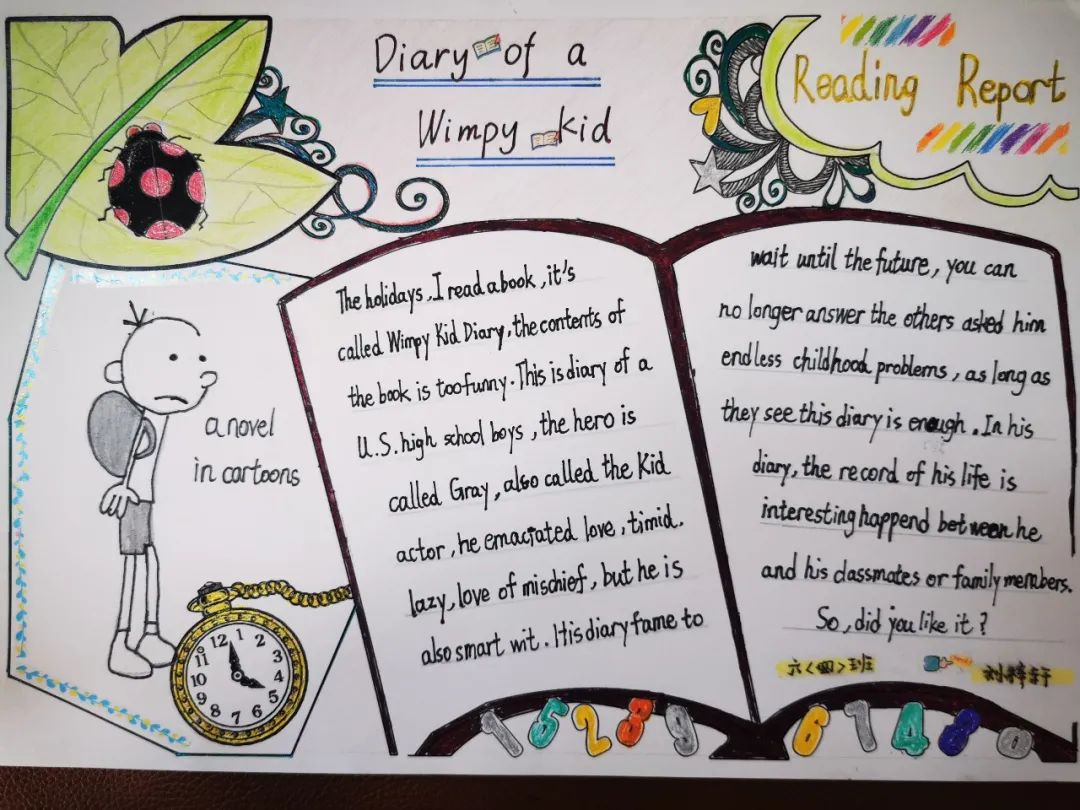 Diary of a
Wimpy Kid
Reading Report
a novel
in cartoons
The holidays, I read a book, it's
called Wimpy Kid Diary, the contents of
the book is too funny. This is diary of a
U.S. high school boys, the hero is
called Gray, also called the Kid
actor, he emaciated love, timid.
lazy, love of mischief, but he is
also smart wit. His diary fame to
wait until the future, you can
no longer answer the others asked him
endless childhood problems, as long as
they see this diary is enough. In his
diary, the record of his life is
interesting happend between he
and his classmates or family members.
So, did you like it?
六<四>班
12 1 2 3 4 5 6 7 8 9 10 11
1 5 2 8 9
6 7 4 8 0